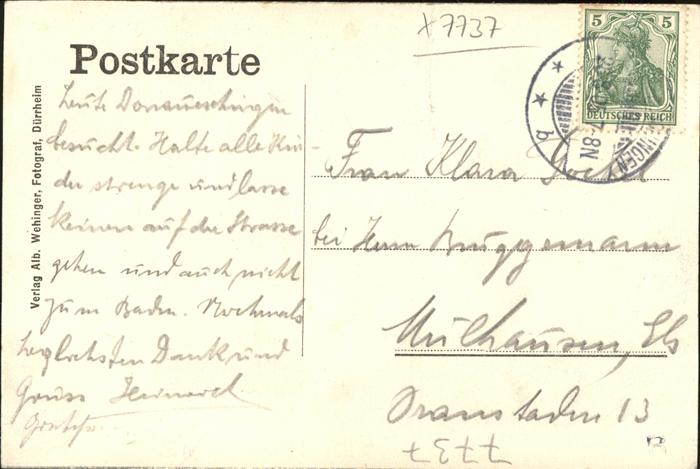 x 7737
Postkarte
5 5
DEUTSCHES REICH
7-8N
* b *
INGEN
Verlag Alb. Wehinger, Fotograf, Dürrheim
heute Donaueschingen
besucht. Halte alle Kin-
der strenge und lasse
keinen auf die Strasse
gehen und auch nicht
zum Baden. Nochmals
herzlichsten Dank und
Gruss
Frau Klara
bei Herrn Bruggemann
Mülhausen, Els
13
7737